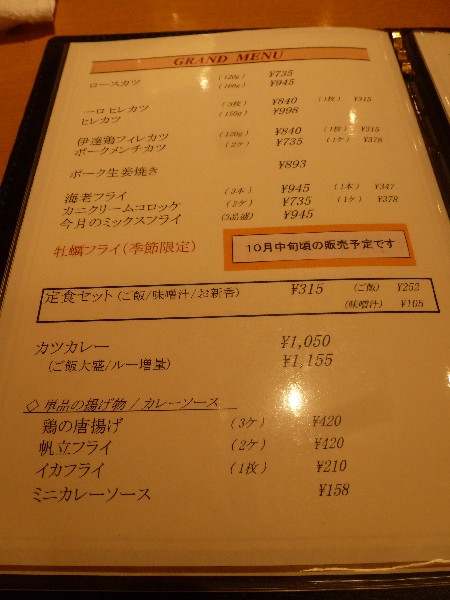 GRAND MENU
ロースカツ (120g) ¥735
(160g) ¥945
一口ヒレカツ (3枚) ¥840 (1枚) ¥315
ヒレカツ (150g) ¥998
伊達鶏フィレカツ (120g) ¥840 (1枚) ¥315
ポークメンチカツ (2ケ) ¥735 (1ケ) ¥378
ポーク生姜焼き ¥893
海老フライ (3本) ¥945 (1本) ¥347
カニクリームコロッケ (2ケ) ¥735 (1ケ) ¥378
今月のミックスフライ (3品盛) ¥945
牡蠣フライ(季節限定) 10月中旬頃の販売予定です
定食セット(ご飯/味噌汁/お新香) ¥315 (ご飯) ¥252
(味噌汁) ¥105
カツカレー ¥1,050
(ご飯大盛/ルー増量) ¥1,155
◇ 単品の揚げ物 / カレーソース
鶏の唐揚げ (3ケ) ¥420
帆立フライ (2ケ) ¥420
イカフライ (1枚) ¥210
ミニカレーソース ¥158